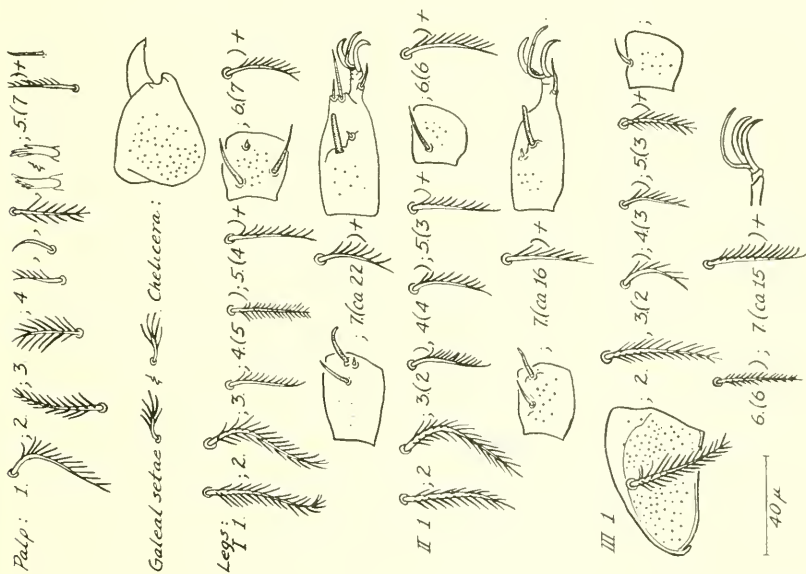 Palp: 1. ; 2. ; 3. ; 4 , ), & ; 5.(7 )+
Galeal setae & . Chelicera:
Legs:
I 1. ; 2. ; 3. ; 4.(5 ); 5.(4 )+ ; 6.(7 )+
; 7.(ca 22 )+
II 1 ; 2 ; 3.(2 ); 4(4 ); 5.(3 )+ ; 6.(6 )+
; 7.(ca 16 )+
III 1 ; 2. , 3.(2 ); 4.(3 ); 5.(3 )+ ;
6.(6 ); 7.(ca 15 )+
40 µ